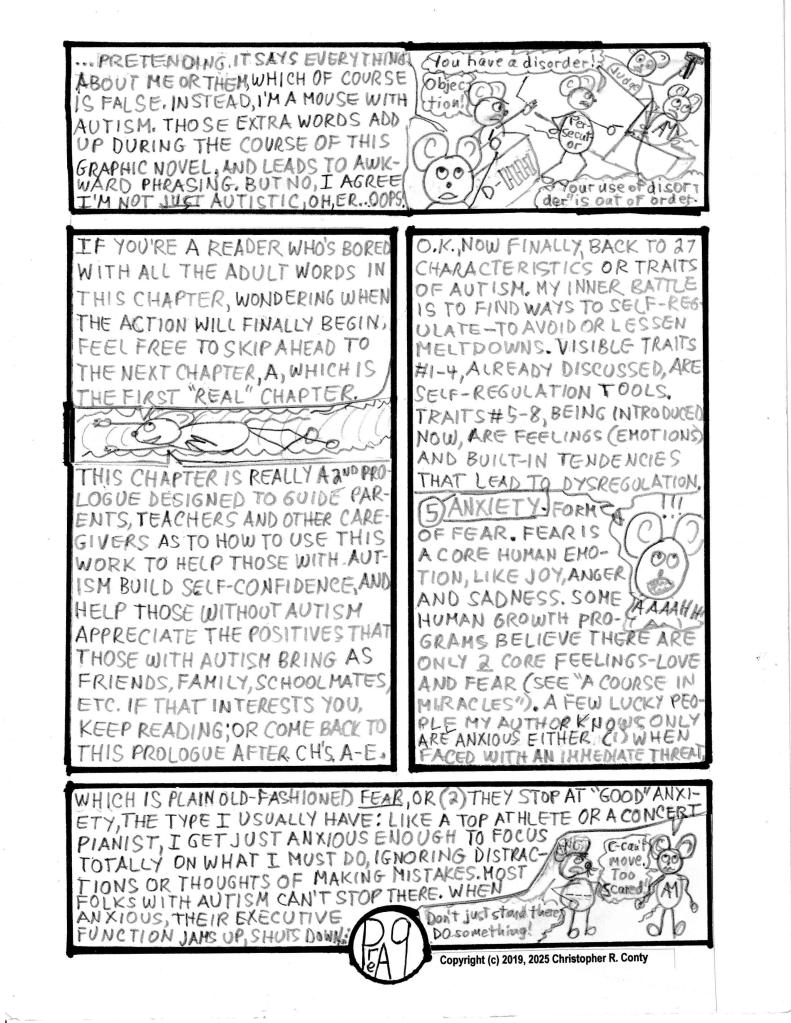 ...PRETENDING. IT SAYS EVERYTHING
ABOUT ME OR THEM, WHICH OF COURSE
IS FALSE. INSTEAD, I'M A MOUSE WITH
AUTISM. THOSE EXTRA WORDS ADD
UP DURING THE COURSE OF THIS
GRAPHIC NOVEL, AND LEADS TO AWK-
WARD PHRASING. BUT NO, I AGREE
I'M NOT JUST AUTISTIC, OH, ER...OOPS.
You have a disorder!
Objec-
tion!
Judge
Per-
secut
or
M
D-
"Your use of disor
der" is out of order.
IF YOU'RE A READER WHO'S BORED
WITH ALL THE ADULT WORDS IN
THIS CHAPTER, WONDERING WHEN
THE ACTION WILL FINALLY BEGIN,
FEEL FREE TO SKIP AHEAD TO
THE NEXT CHAPTER, A, WHICH IS
THE FIRST "REAL" CHAPTER.
THIS CHAPTER IS REALLY A 2ND PRO-
LOGUE DESIGNED TO GUIDE PAR-
ENTS, TEACHERS AND OTHER CARE-
GIVERS AS TO HOW TO USE THIS
WORK TO HELP THOSE WITH AUT-
ISM BUILD SELF-CONFIDENCE, AND
HELP THOSE WITHOUT AUTISM
APPRECIATE THE POSITIVES THAT
THOSE WITH AUTISM BRING AS
FRIENDS, FAMILY, SCHOOLMATES,
ETC. IF THAT INTERESTS YOU,
KEEP READING; OR COME BACK TO
THIS PROLOGUE AFTER CH'S. A-E.
O.K., NOW FINALLY, BACK TO 27
CHARACTERISTICS OR TRAITS
OF AUTISM. MY INNER BATTLE
IS TO FIND WAYS TO SELF-REG-
ULATE-TO AVOID OR LESSEN
MELTDOWNS. VISIBLE TRAITS
#1-4, ALREADY DISCUSSED, ARE
SELF-REGULATION TOOLS.
TRAITS #5-8, BEING INTRODUCED
NOW, ARE FEELINGS (EMOTIONS)
AND BUILT-IN TENDENCIES
THAT LEAD TO DYSREGULATION.
5 ANXIETY. FORM
OF FEAR. FEAR IS
A CORE HUMAN EMO-
TION, LIKE JOY, ANGER
AND SADNESS. SOME
HUMAN GROWTH PRO-
GRAMS BELIEVE THERE ARE
ONLY 2 CORE FEELINGS-LOVE
AND FEAR (SEE "A COURSE IN
MIRACLES"). A FEW LUCKY PEO-
PLE MY AUTHOR KNOWS ONLY
ARE ANXIOUS EITHER (1) WHEN
FACED WITH AN IMMEDIATE THREAT,
!!!
AAAAHH!
WHICH IS PLAIN OLD-FASHIONED FEAR, OR (2) THEY STOP AT "GOOD" ANXI-
ETY, THE TYPE I USUALLY HAVE: LIKE A TOP ATHLETE OR A CONCERT
PIANIST, I GET JUST ANXIOUS ENOUGH TO FOCUS
TOTALLY ON WHAT I MUST DO, IGNORING DISTRAC-
TIONS OR THOUGHTS OF MAKING MISTAKES. MOST
FOLKS WITH AUTISM CAN'T STOP THERE. WHEN
ANXIOUS, THEIR EXECUTIVE
FUNCTION JAMS UP, SHUTS DOWN:
C-can't
move.
Too
scared!
M
Don't just stand there,
DO something!
PreA9
Copyright (c) 2019, 2025 Christopher R. Conty